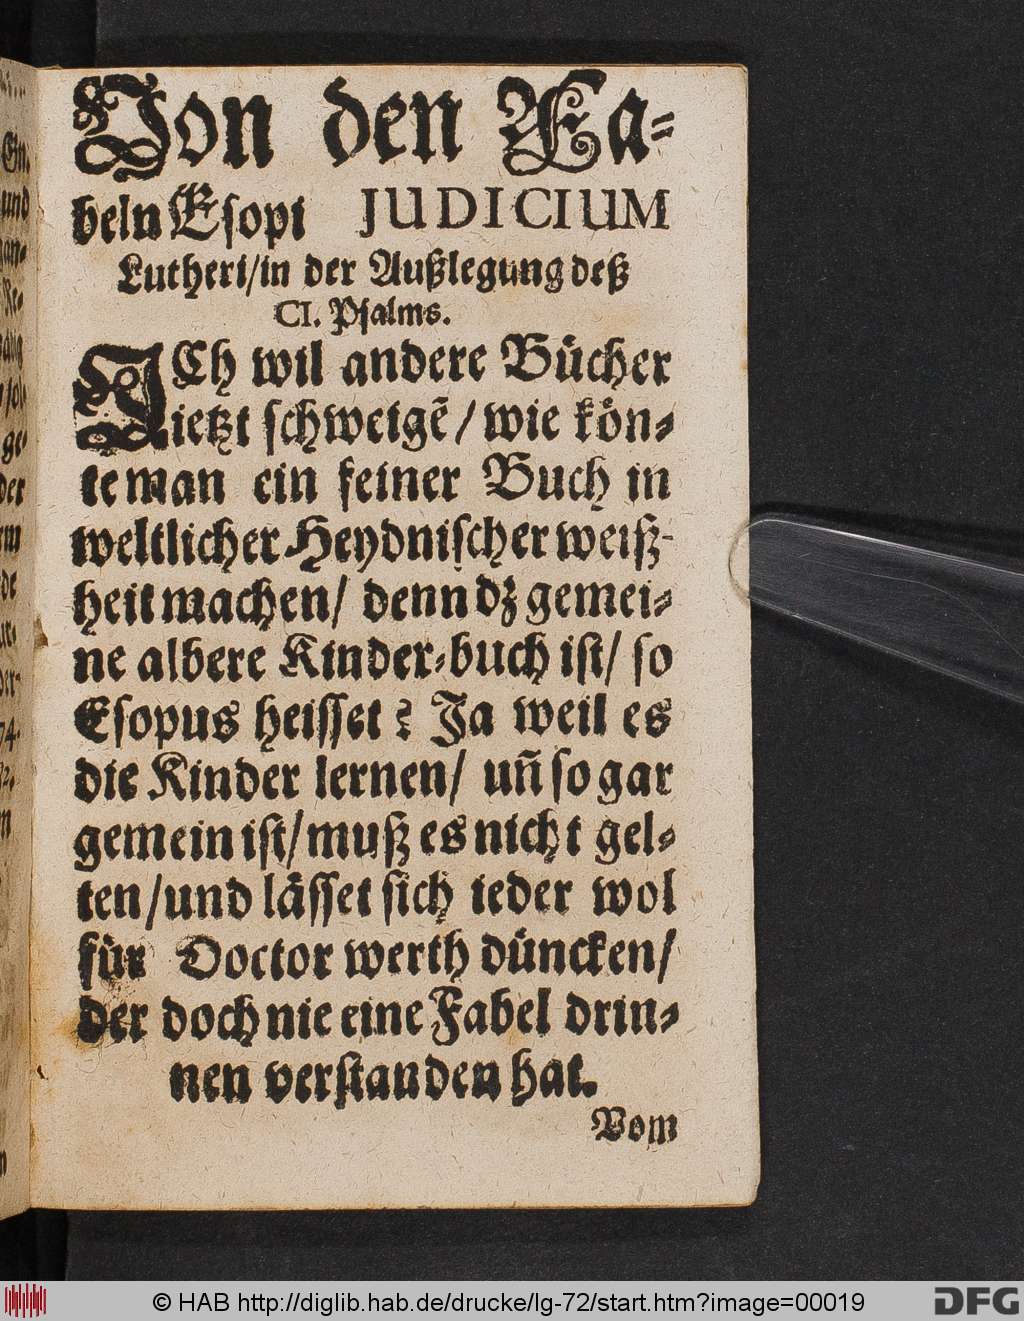 Von den Fa-
beln Esopi JUDICIUM
Lutheri/in der Außlegung deß
CI. Psalms.
ICh wil andere Bücher
ietzt schweigẽ/ wie kön-
te man ein feiner Buch in
weltlicher Heydnischer weiß-
heit machen/ denn dz gemei-
ne albere Kinder-buch ist/ so
Esopus heisset? Ja weil es
die Kinder lernen/ uñ so gar
gemein ist/muß es nicht gel-
ten/und lässet sich ieder wol
für Doctor werth düncken/
der doch nie eine Fabel drin-
nen verstanden hat.
Vom
© HAB http://diglib.hab.de/drucke/lg-72/start.htm?image=00019
DFG